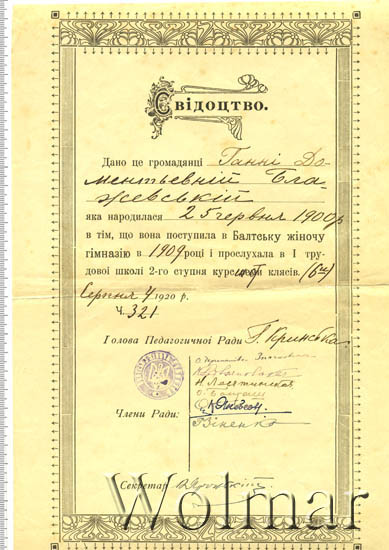 Свідоцтво.
Дано це громадянці Ганні До-
ментьевній Бла-
жевській
яка народилася 25 червня 1900 р
в тім, що вона поступила в Балтську жіночу
гімназію в 1909 році і прослухала в І тру-
довоі школі 2-го ступня курс клясів. (6ти)
Серпня 4 1920 р.
Ч. 321
Голова Педагогичної Ради Г. Кринська
Н. Лесятинская
Члени Ради:
Віненко
Секретар
Wolmar